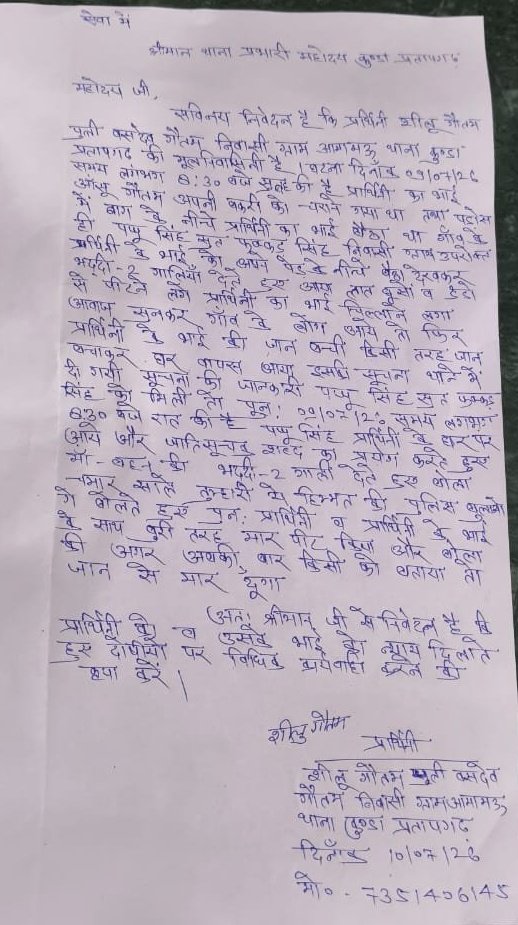 सेवा में
श्रीमान थाना प्रभारी महोदय कुण्डा प्रतापगढ़
महोदय जी,
सविनय निवेदन है कि प्रार्थिनी शीलू गौतम
पुत्री वसदेव गौतम निवासी ग्राम आमामऊ थाना कुण्डा
प्रतापगढ़ की मूल निवासिनी है । घटना दिनांक 09/07/26
समय लगभग 8:30 बजे सुबह की है प्रार्थिनी का भाई
गौतम अपनी बकरी को चराने गया था तथा पड़ोस
में बाग के नीचे प्रार्थिनी का भाई बैठा था गाँव के
ही पप्पू सिंह सुत फक्कड़ सिंह निवासी उपरोक्त
प्रार्थिनी के भाई को अपने पेड़ के नीचे बैठा देखकर
भद्दी-2 गालियाँ देते हुए आया लात घूसों व डंडो
से पीटने लगे प्रार्थिनी का भाई चिल्लाने लगा
आवाज सुनकर गाँव के लोग आये तो फिर
प्रार्थिनी के भाई की जान बची किसी तरह जान
बचाकर घर वापस आया इसकी सूचना थाने में
दी गयी सूचना की जानकारी पप्पू सिंह सुत फक्कड़
सिंह को मिली तो पुनः 09/07/26 समय लगभग
8:30 बजे रात की है पप्पू सिंह प्रार्थिनी के घर पर
आये और जातिसूचक शब्द का प्रयोग करते हुए
माँ-बहन की भद्दी-2 गाली देते हुए बोला
साले तुम्हारी ये हिम्मत की पुलिस बुलाओगे
बोलते हुए पुनः प्रार्थिनी व प्रार्थिनी के भाई
के साथ बुरी तरह मार पीट किया और बोला
की अगर अबकी बार किसी को बताया तो
जान से मार दूंगा
अतः श्रीमान् जी से निवेदन है कि
प्रार्थिनी को व उसके भाई को न्याय दिलाते
हुए दोषियों पर विधिक कार्यवाही करने की
कृपा करें ।
शीलु गौतम
प्रार्थिनी
शीलू गौतम पुत्री वसदेव
गौतम निवासी ग्राम आमामऊ
थाना कुण्डा प्रतापगढ़
दिनाँक 10/07/26
मो० - 7351406145